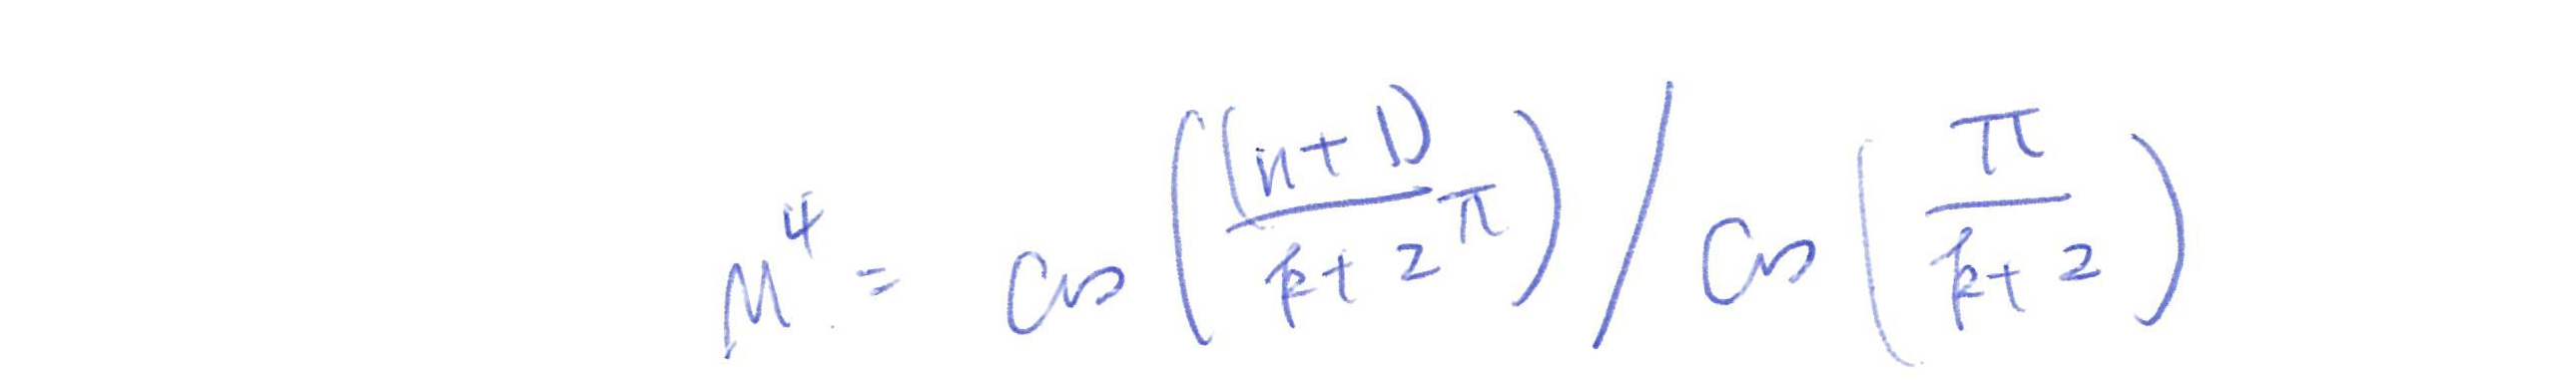 M^4 = cos((n+1)/(k+2) π) / cos(π/(k+2))